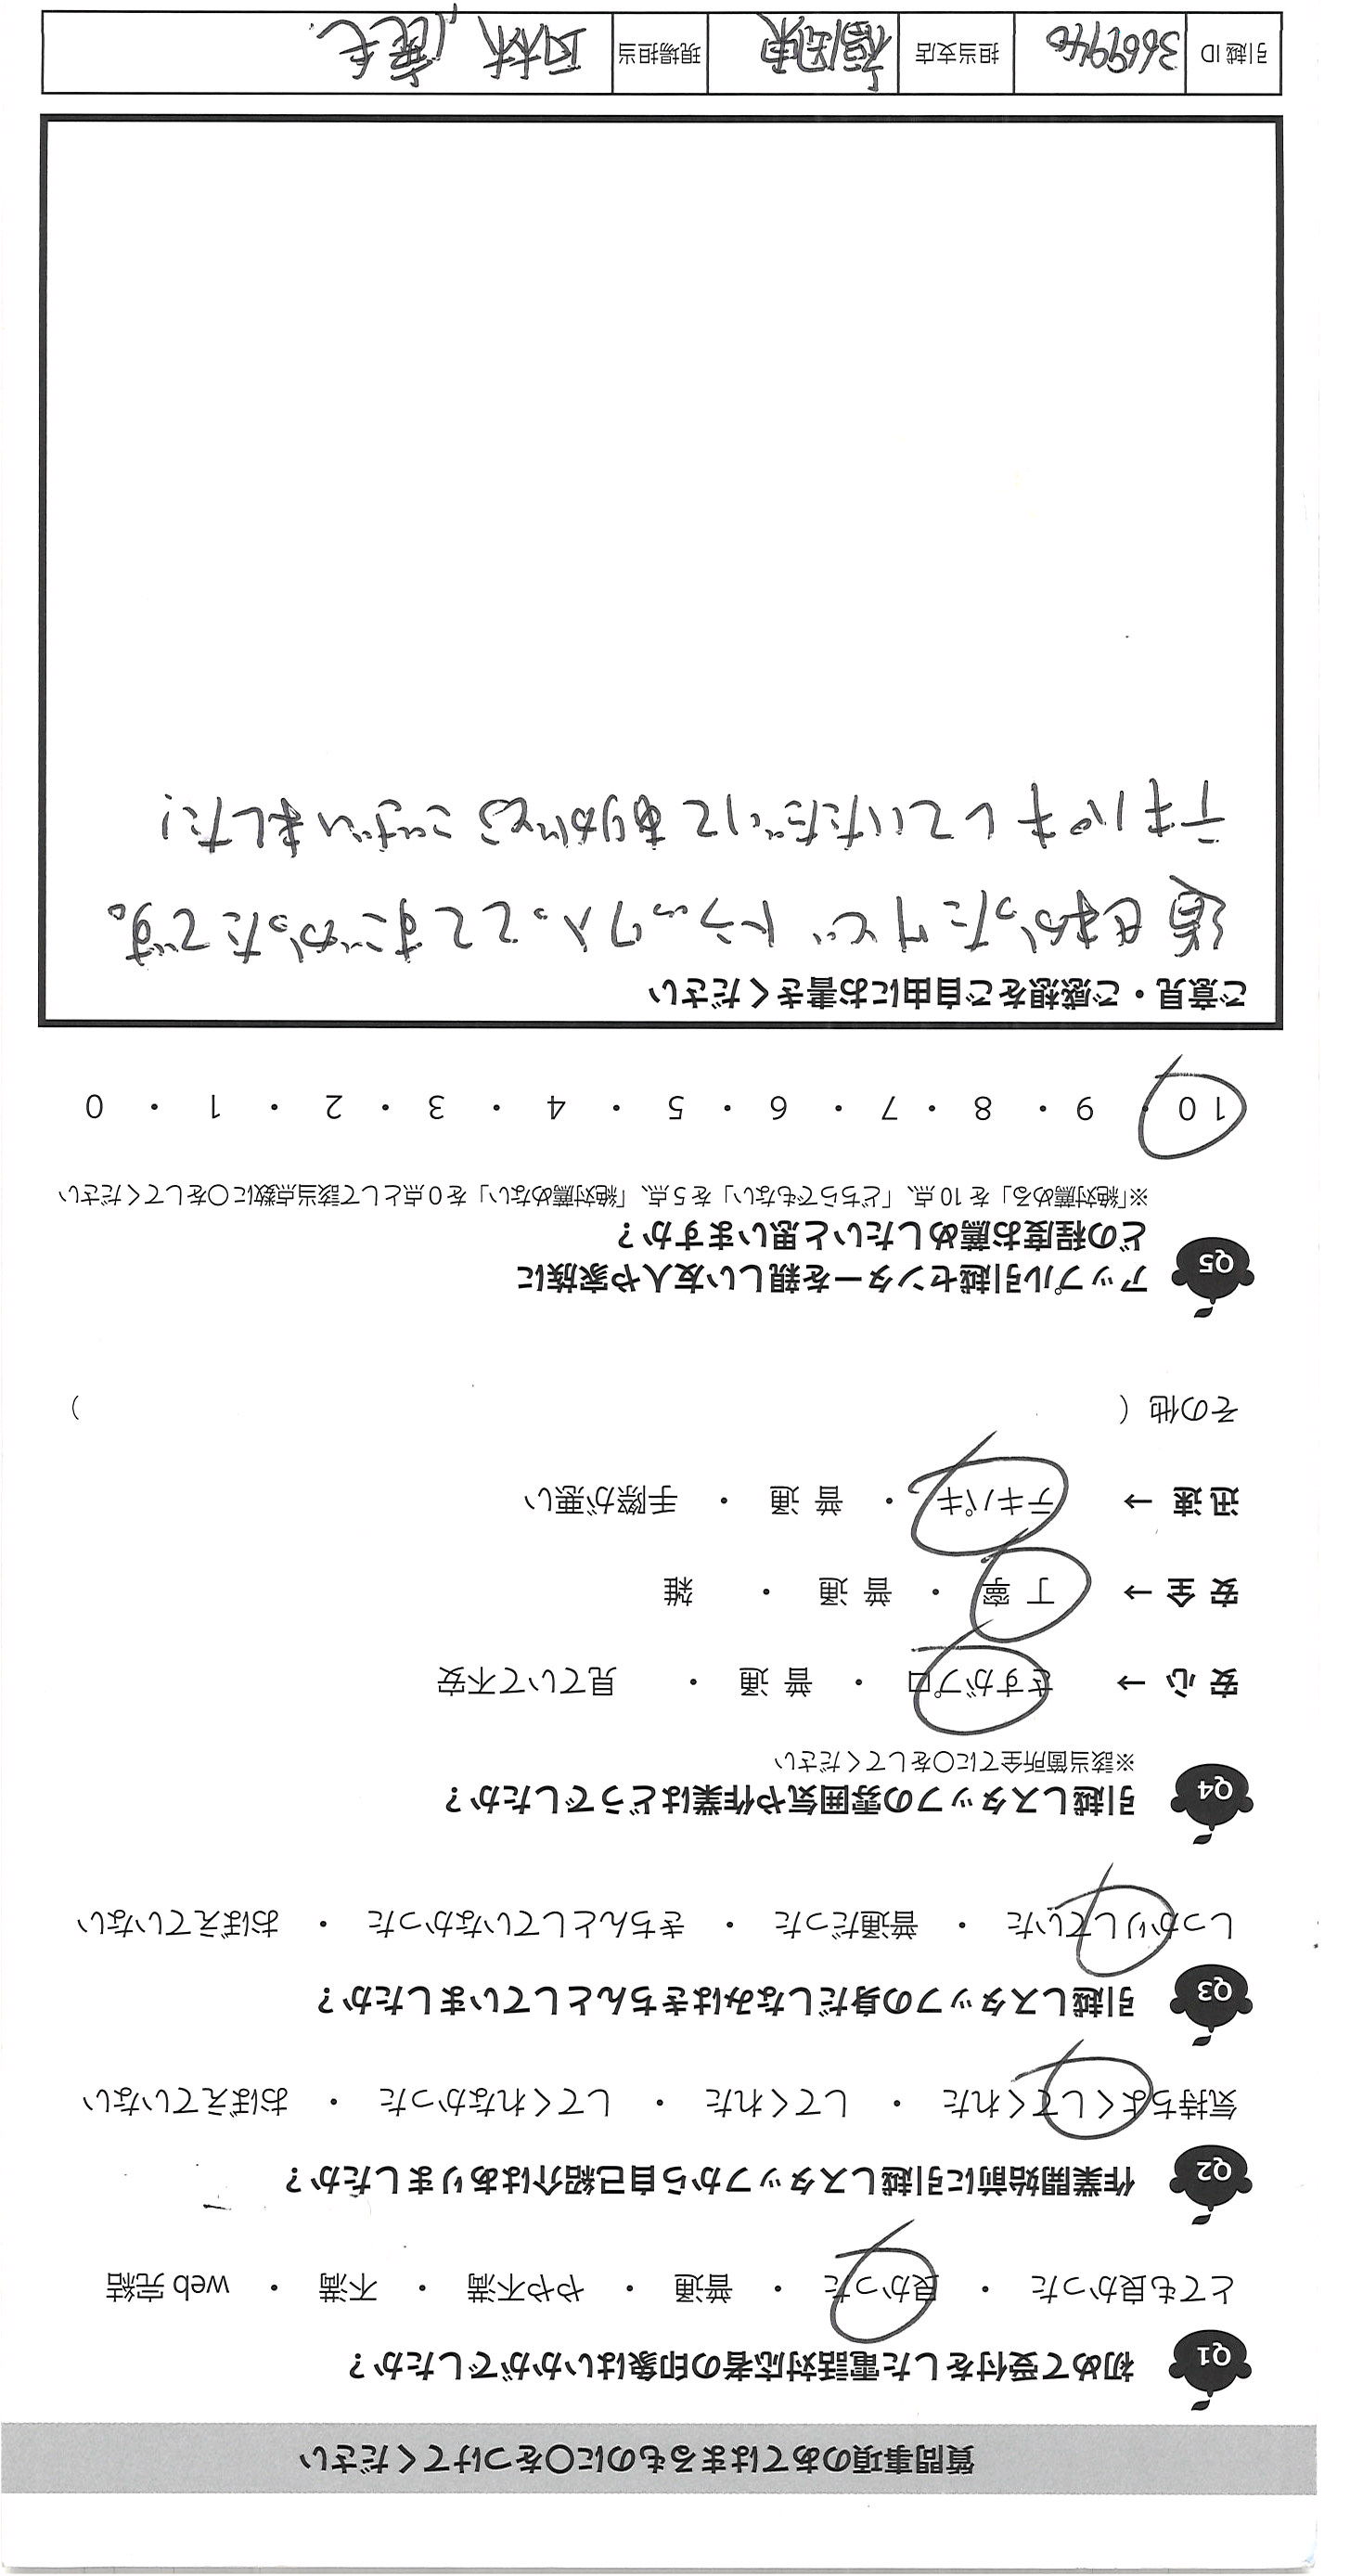 質問事項のあてはまるものに○をつけてください
Q1 初めて受付をした電話対応者の印象はいかがでしたか？
とても良かった ・ 良かった ・ 普通 ・ やや不満 ・ 不満 ・ web 完結
Q2 作業開始前に引越しスタッフから自己紹介はありましたか？
気持ちよくしてくれた ・ してくれた ・ してくれなかった ・ おぼえていない
Q3 引越しスタッフの身だしなみはきちんとしていましたか？
しっかりしていた ・ 普通だった ・ きちんとしていなかった ・ おぼえていない
Q4 引越しスタッフの雰囲気や作業はどうでしたか？
※該当箇所全てに○をしてください
安心 → さすがプロ ・ 普通 ・ 見ていて不安
安全 → 丁寧 ・ 普通 ・ 雑
迅速 → テキパキ ・ 普通 ・ 手際が悪い
その他（ ）
Q5 アップル引越センターを親しい友人や家族に
どの程度お薦めしたいと思いますか？
※「絶対薦める」を 10 点、「どちらでもない」を 5 点、「絶対薦めない」を 0 点として該当点数に○をしてください
10 ・ 9 ・ 8 ・ 7 ・ 6 ・ 5 ・ 4 ・ 3 ・ 2 ・ 1 ・ 0
ご意見・ご感想をご自由にお書きください
道せまかったけど トラック入っててすごかったです。
テキパキしていただいてありがとうございました！
引越 ID 3669940 担当支店 福岡東 現場担当